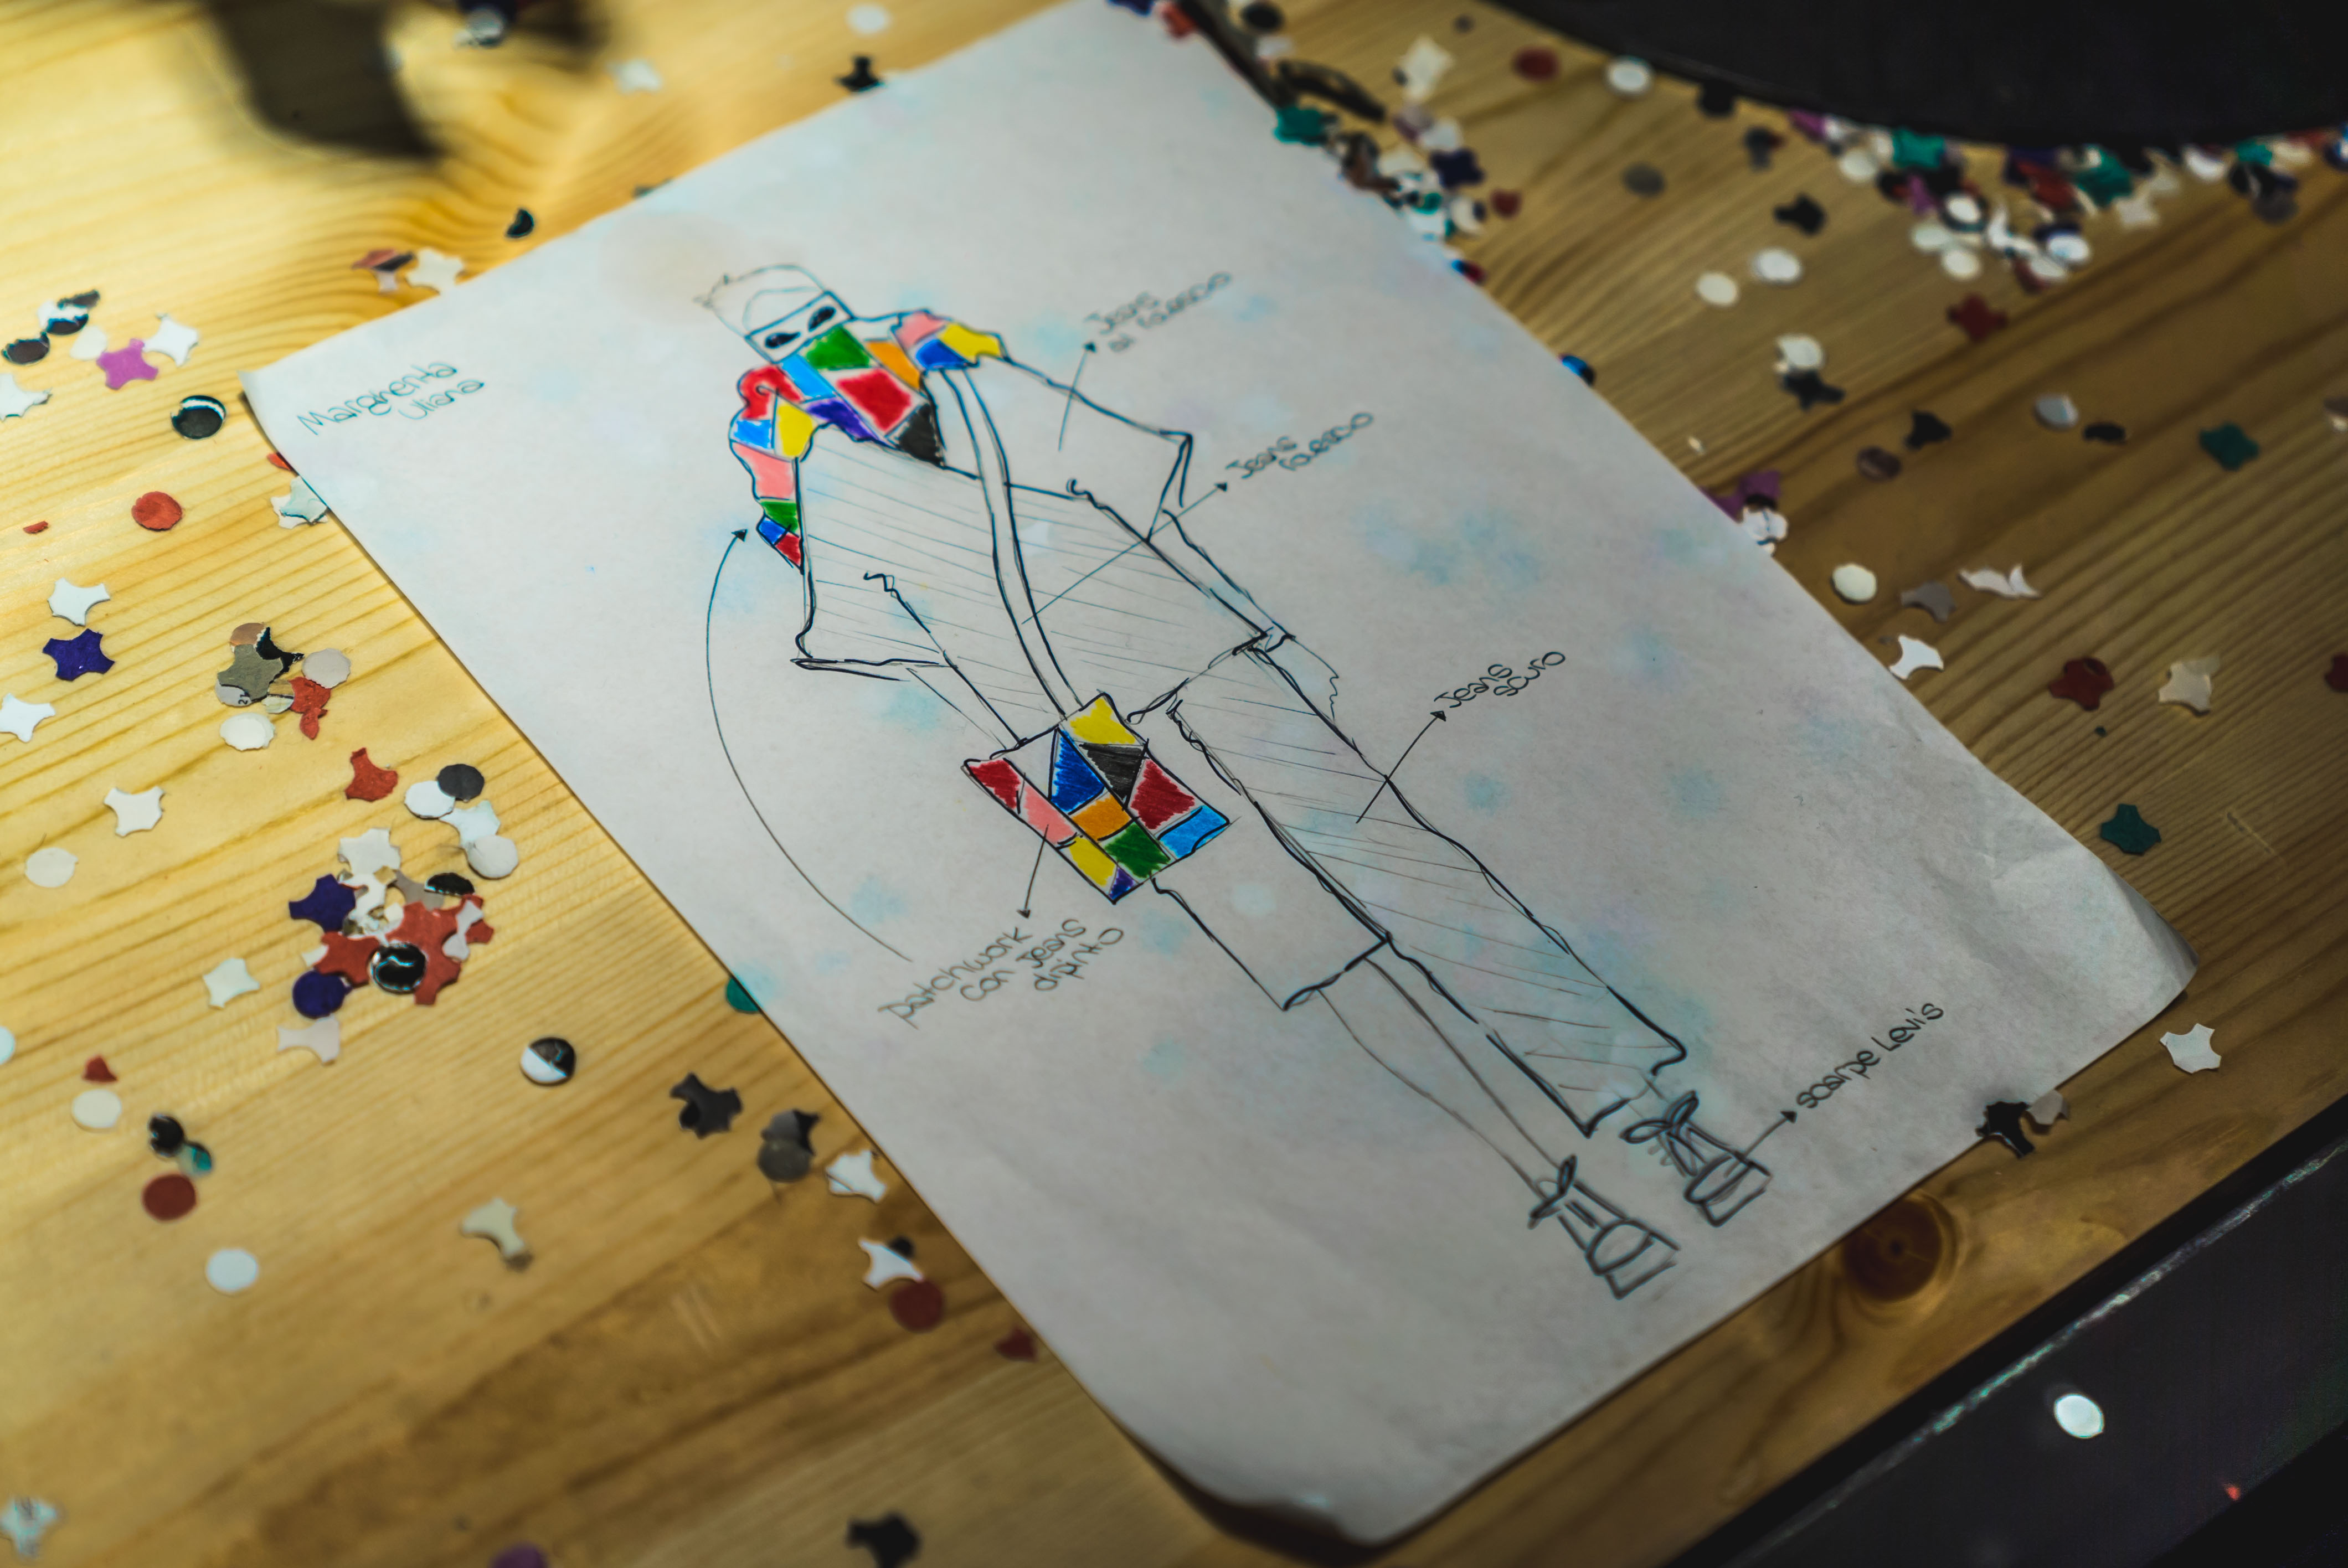 Margherita
Uliana
Jeans
al rovescio
Jeans
rovescio
Jeans
scuro
patchwork
con Jeans
dipinto
scarpe Levi's